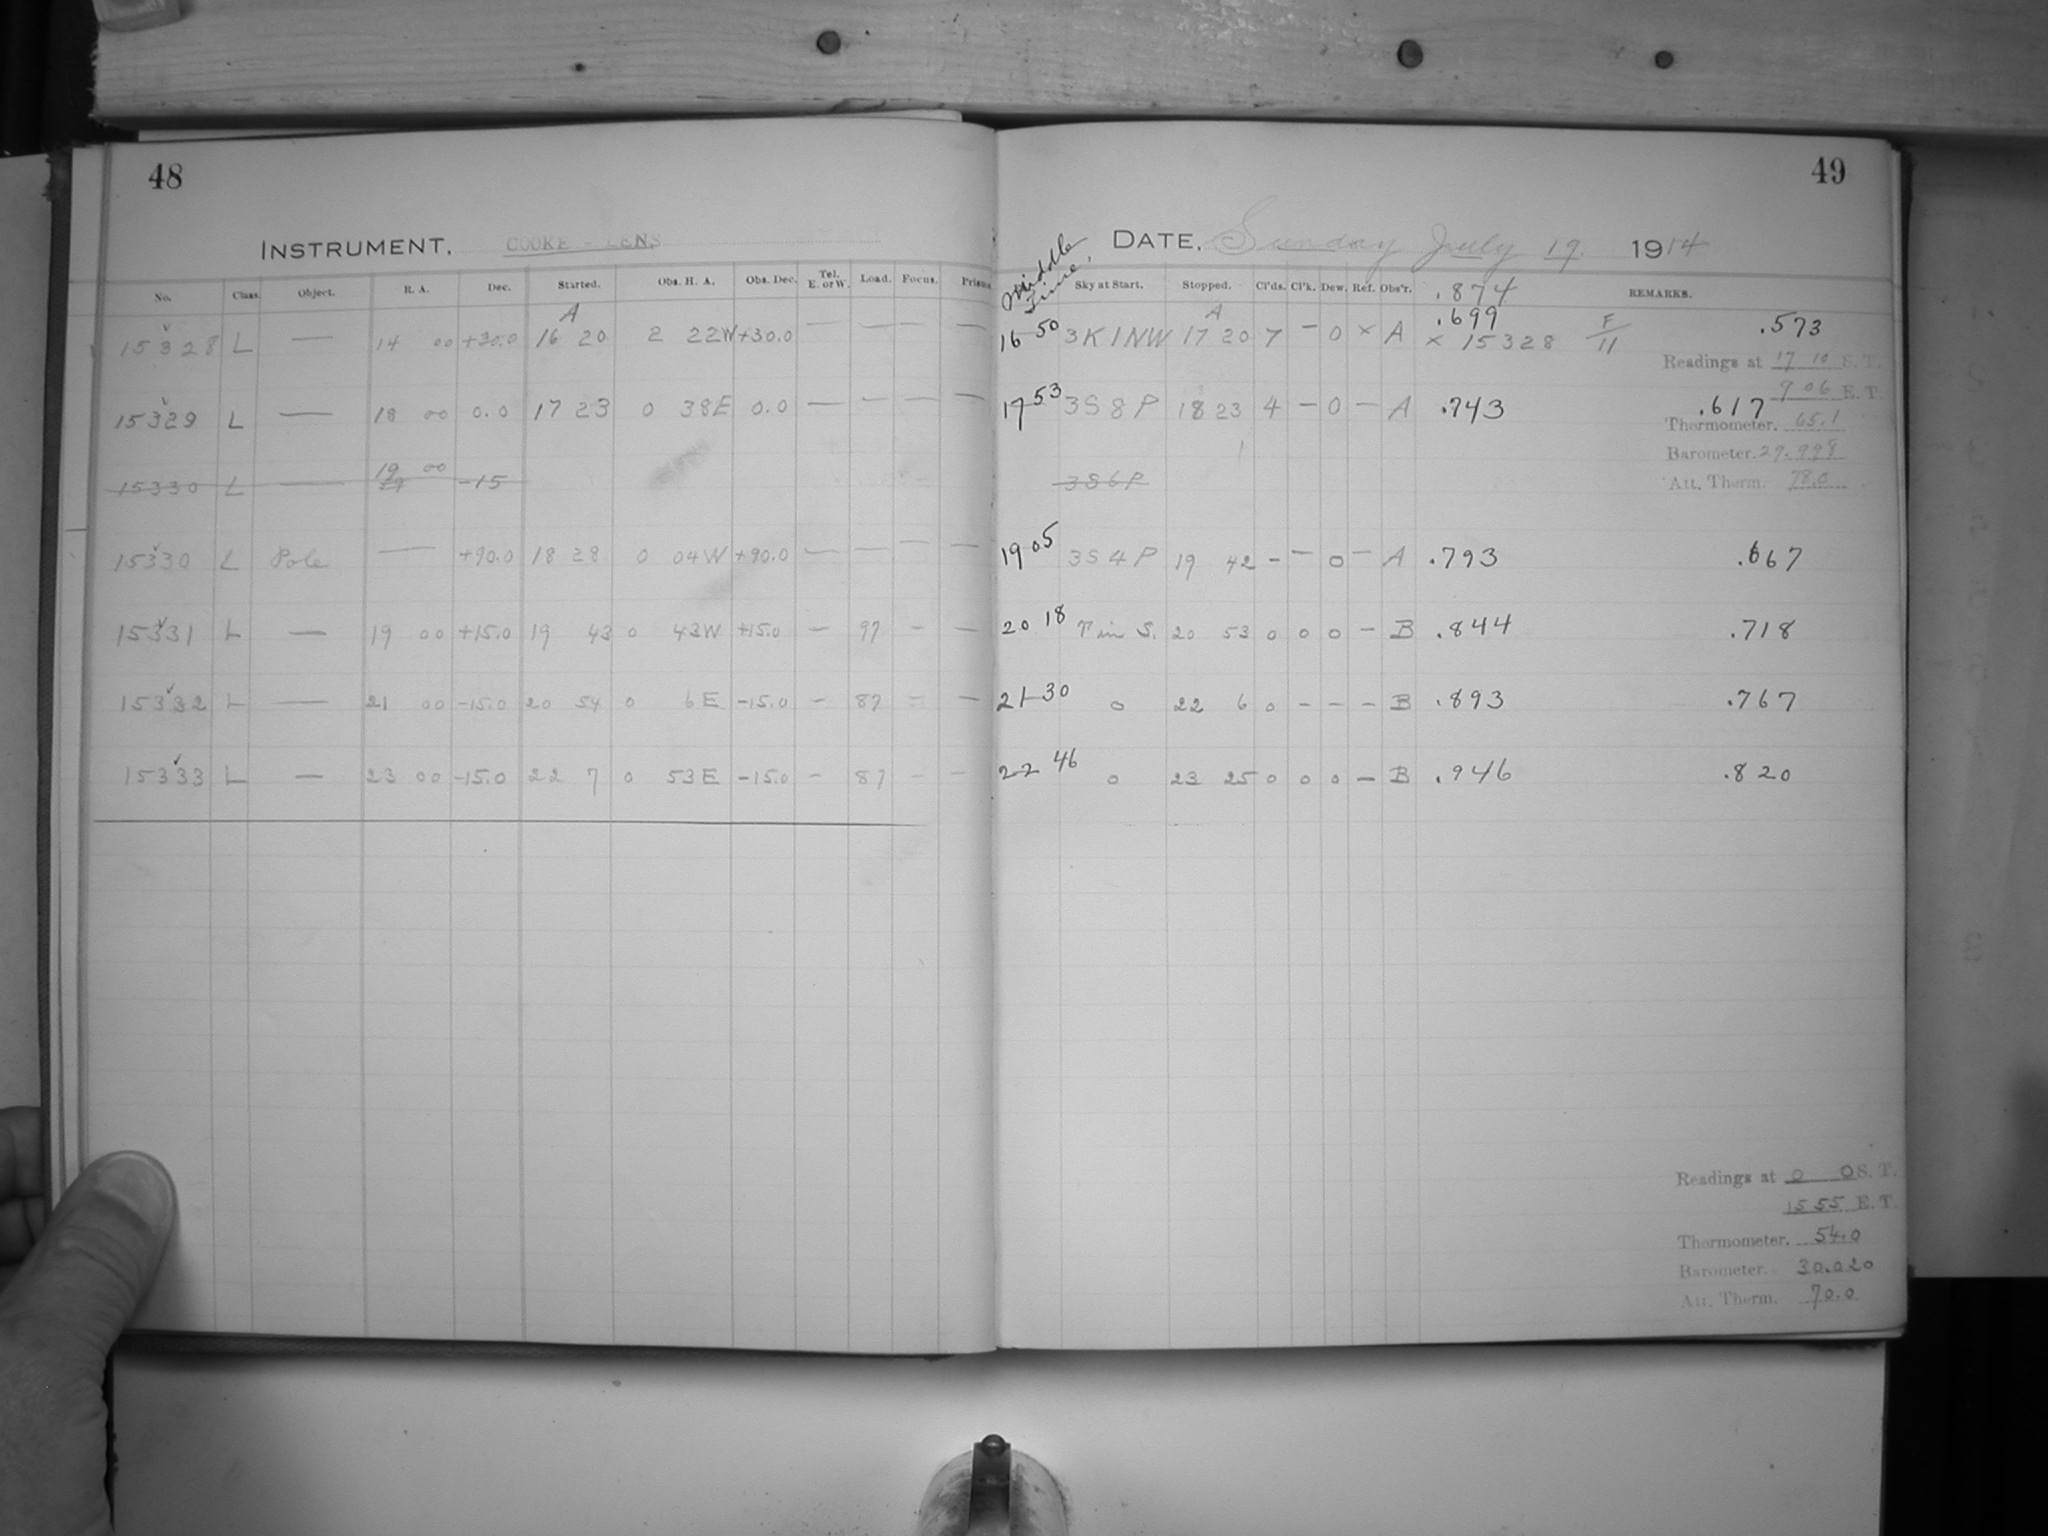 48
INSTRUMENT, COOKE - LENS
No. Class. Object. R. A. Dec. Started. Obs. H. A. Obs. Dec. Tel. E. or W. Load. Focus. Prisms
15328 L — 14 00 +30.0 A 16 20 2 22W +30.0 — — — —
15329 L — 18 00 0.0 17 23 0 38E 0.0 — — — —
15330 L — 19 00 -15
15330 L Pole — +90.0 18 28 0 04W +90.0 — — — —
15331 L — 19 00 +15.0 19 43 0 43W +15.0 — 97 — —
15332 L — 21 00 -15.0 20 54 0 6E -15.0 — 87 — —
15333 L — 23 00 -15.0 22 7 0 53E -15.0 — 87 — —
49
DATE, Sunday July 19. 1914
Middle Time, Sky at Start. Stopped. Cl'ds. Cl'k. Dew. Ref. Obs'r. .874 REMARKS.
16 50 3K1NW A 17 20 7 — 0 × A .699 × 15328 F/11 .573
Readings at 17 10 S. T.
9 06 E. T.
17 53 3S8P 18 23 4 — 0 — A .743 .617
Thermometer. 65.1
Barometer. 29.998
Att. Therm. 78.0
3S6P
19 05 3S4P 19 42 — — 0 — A .793 .667
20 18 in S. 20 53 0 0 0 — B .844 .718
21 30 0 22 6 0 — — — B .893 .767
22 46 0 23 25 0 0 0 — B .946 .820
Readings at 0 0 S. T.
15 55 E. T.
Thermometer. 54.0
Barometer. 30.020
Att. Therm. 70.0